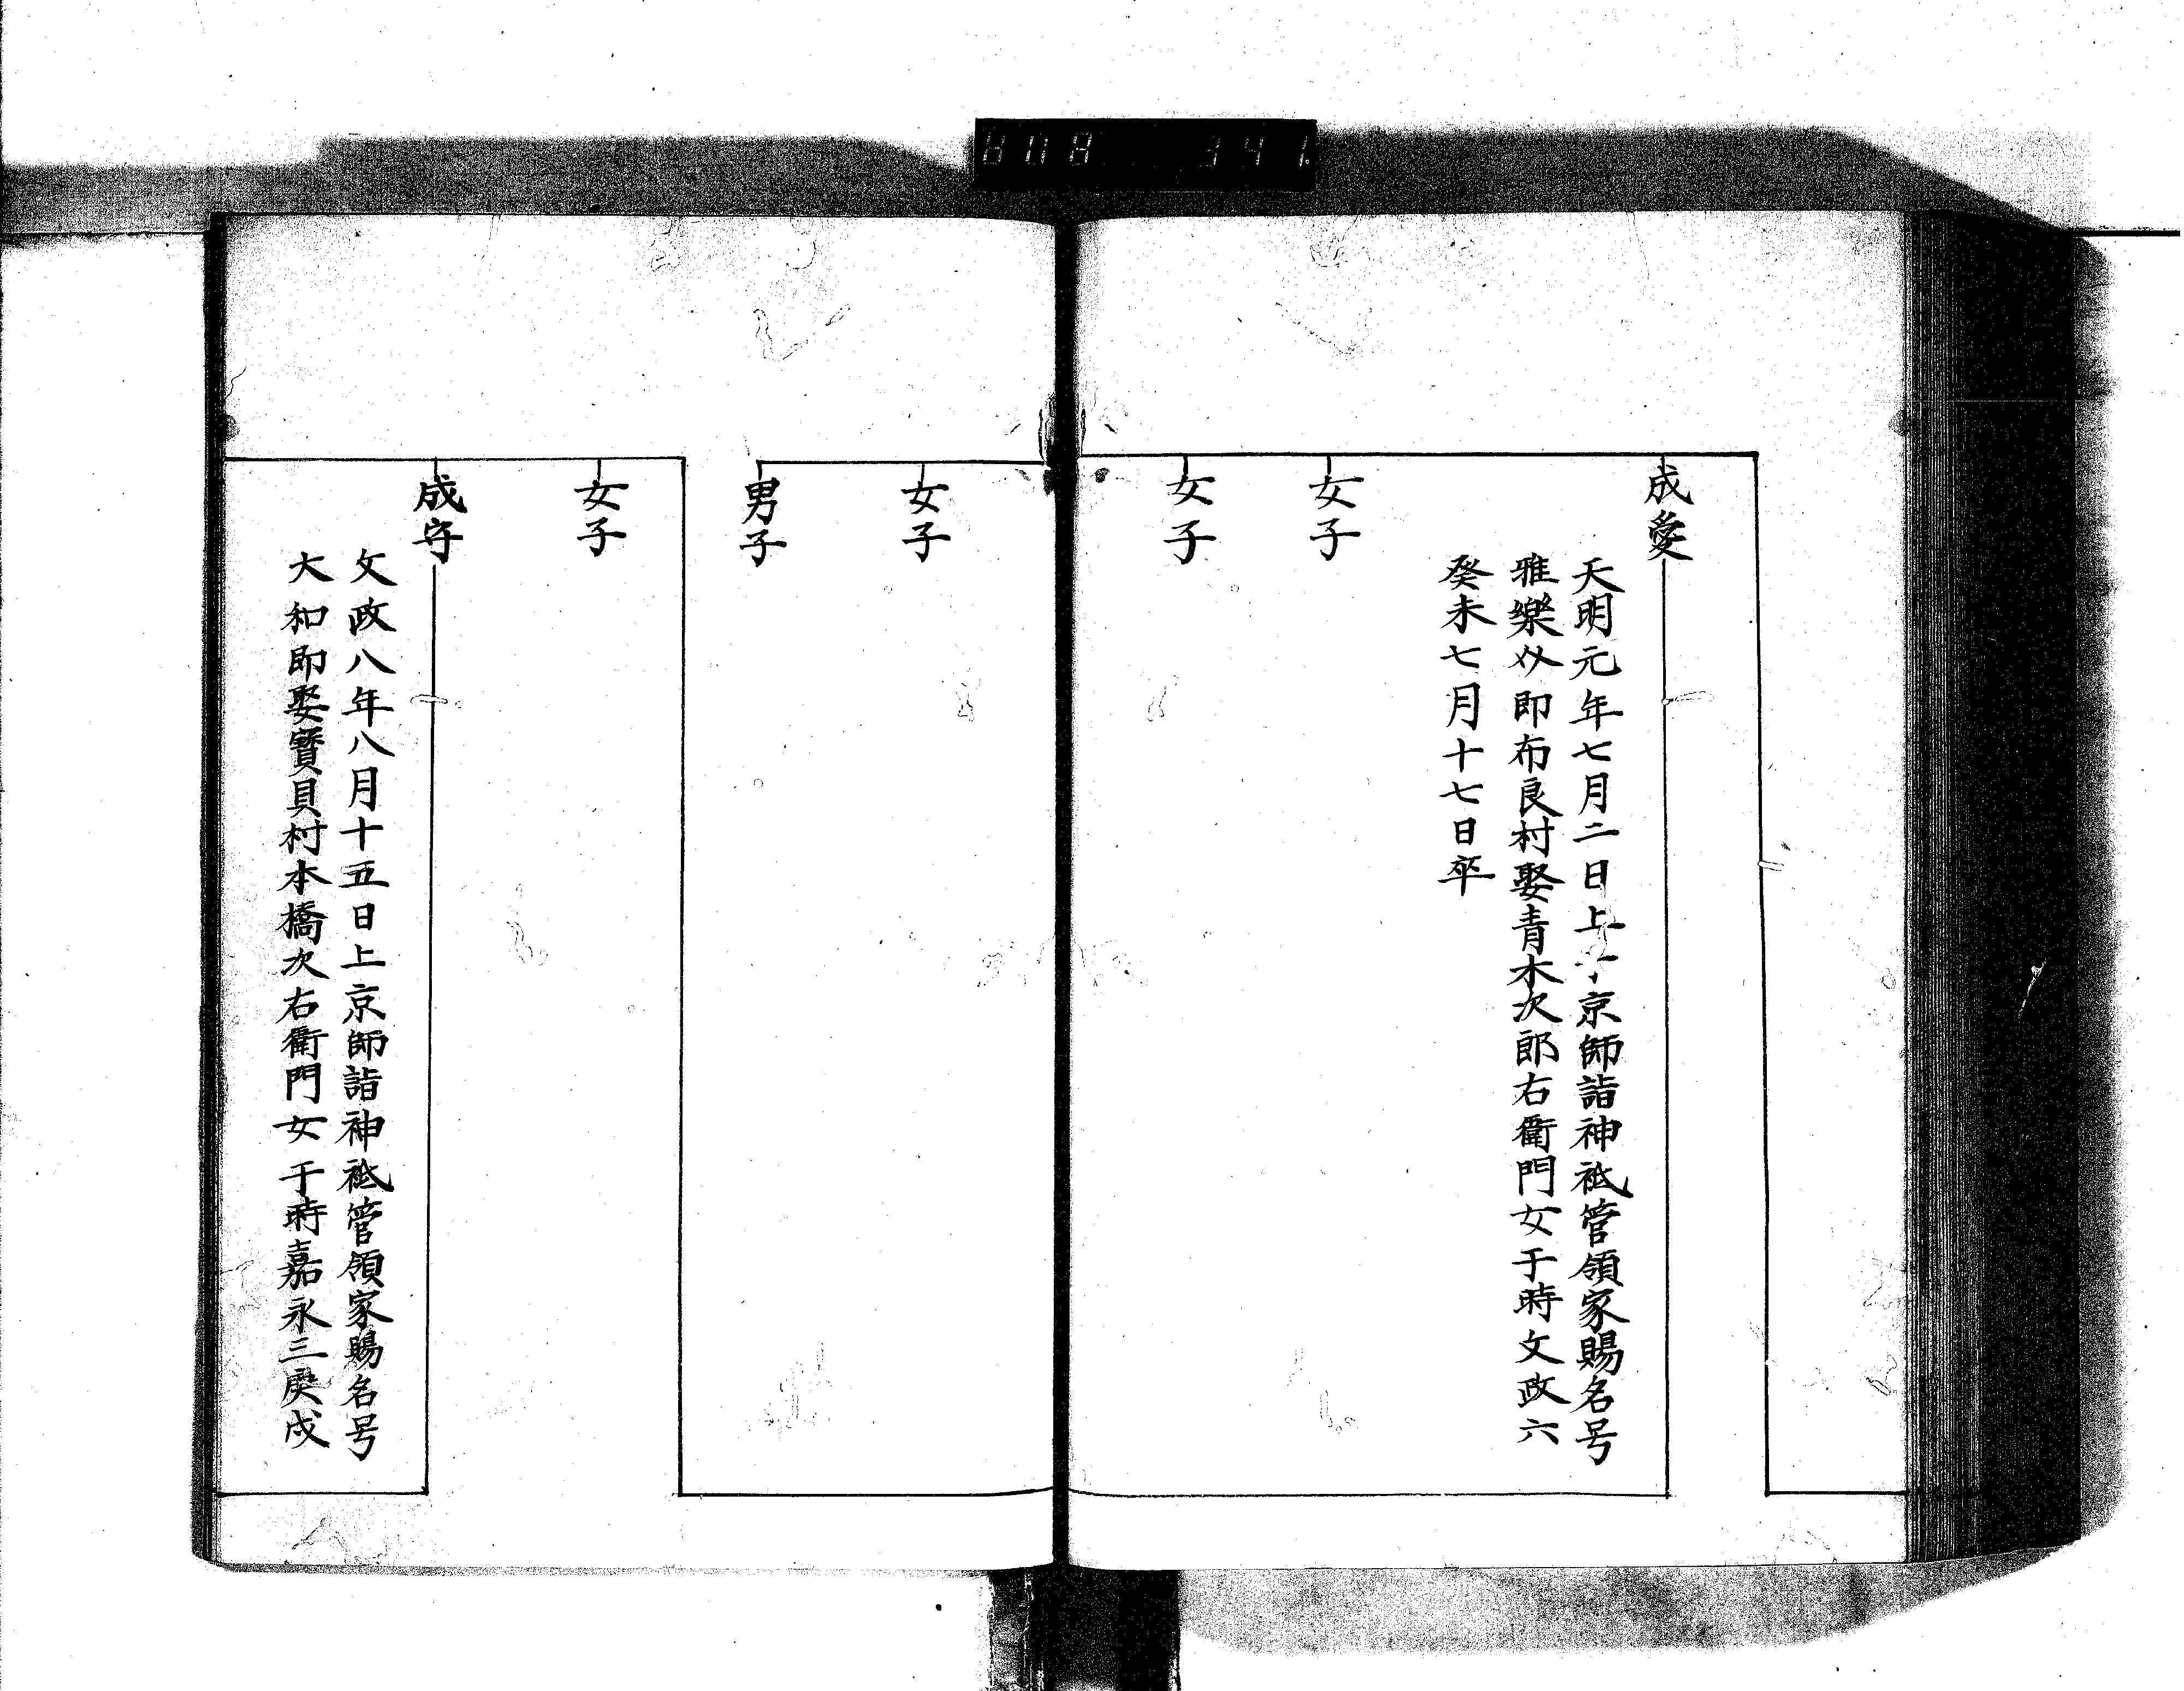 成愛
天明元年七月二日上于京師詣神祇管領家賜名号
雅樂 即布良村娶青木次郎右衛門女于時文政六
癸未七月十七日卒
女子
女子
女子
男子
女子
成守
文政八年八月十五日上京師詣神祇管領家賜名号
大和即娶寶貝村本橋次右衛門女于時嘉永三庚戌